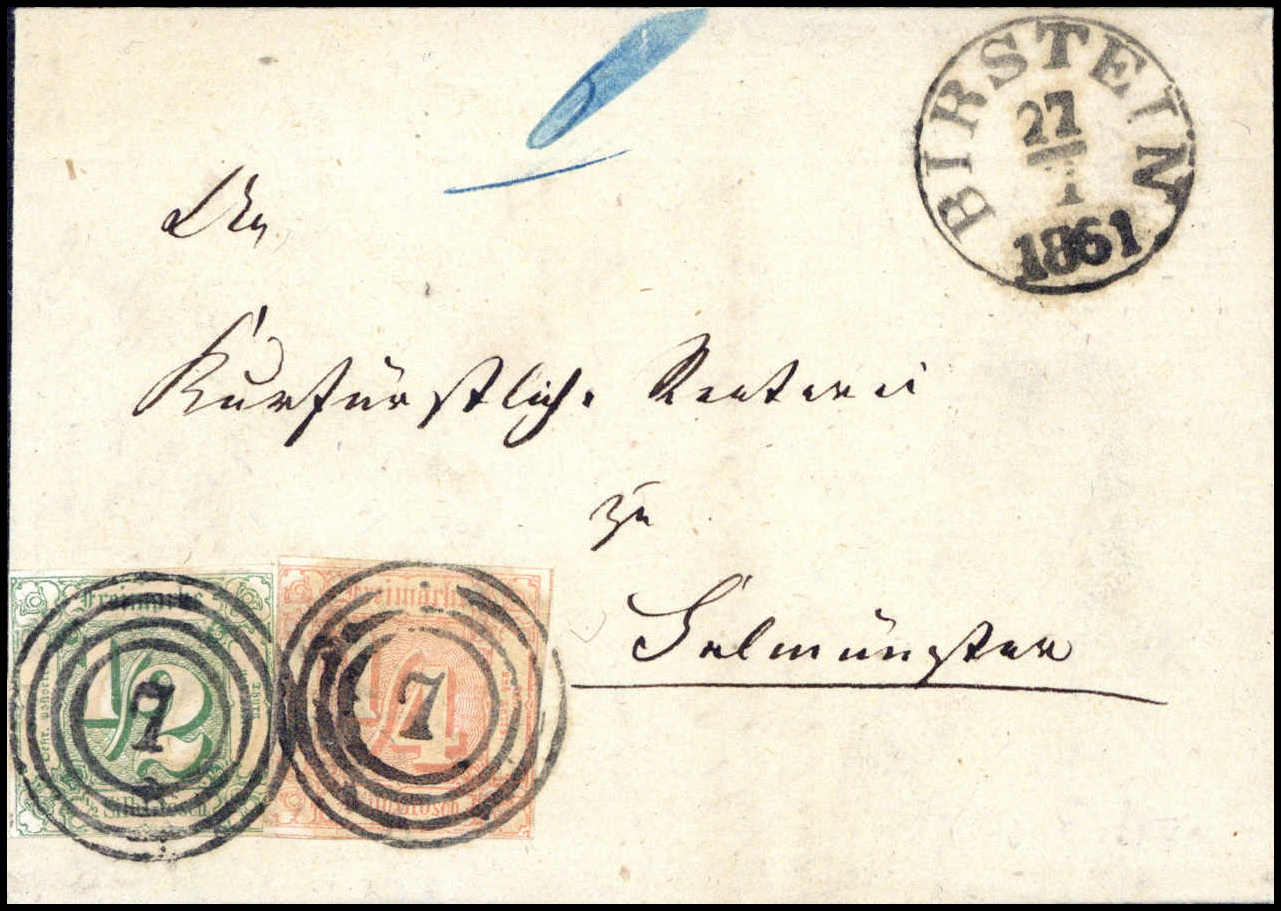 BIRSTEIN
27
1
1861
An
Kurfürstliche Renterei
zu
Salmünster
Freimarke
1/2
Silb. Grosch.
7
Freimarke
1/4
Silb. Grosch.
7